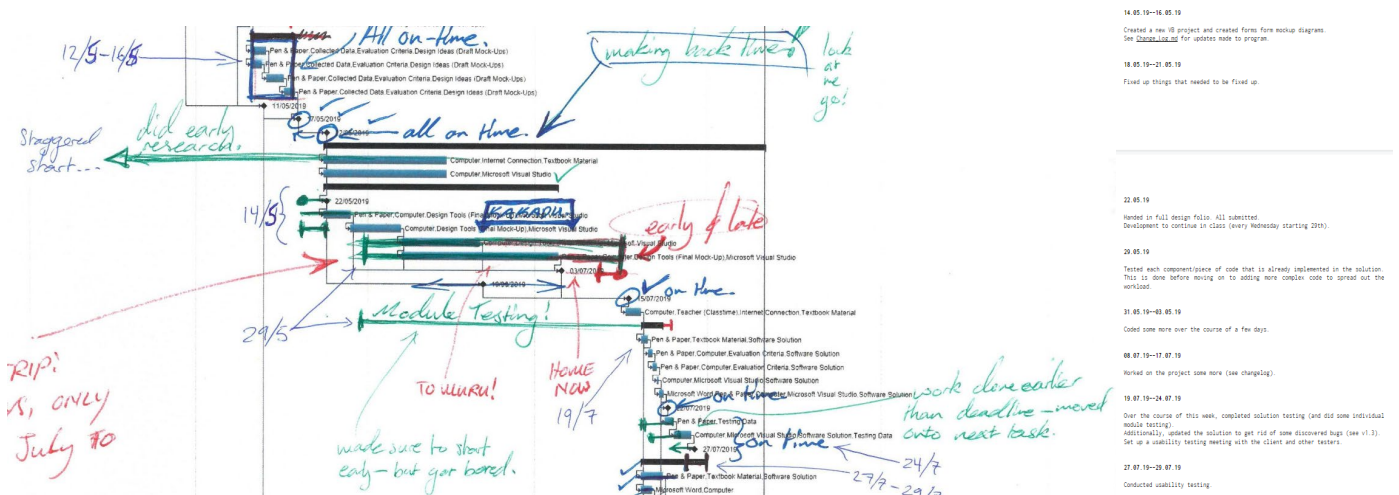 All on-time.
12/5-16/5
Pen & Paper,Collected Data,Evaluation Criteria,Design Ideas (Draft Mock-Ups)
Pen & Paper,Collected Data,Evaluation Criteria,Design Ideas (Draft Mock-Ups)
Pen & Paper,Collected Data,Evaluation Criteria,Design Ideas (Draft Mock-Ups)
Pen & Paper,Collected Data,Evaluation Criteria,Design Ideas (Draft Mock-Ups)
11/05/2019
17/05/2019
making back time!
look
at
we
go!
all on time.
did early
research.
Staggered
start...
Computer,Internet Connection,Textbook Material
Computer,Microsoft Visual Studio
22/05/2019
14/5
KAKADU
early & late
Computer,Design Tools (Final Mock-Up),Microsoft Visual Studio
Design Tools (Final Mock-Up),Microsoft Visual Studio
03/07/2019
15/07/2019
on time.
Computer,Teacher (Classtime),Internet Connection,Textbook Material
29/5
Module Testing!
Pen & Paper,Textbook Material,Software Solution
Pen & Paper,Computer,Evaluation Criteria,Software Solution
Pen & Paper,Computer,Evaluation Criteria,Software Solution
Computer,Microsoft Visual Studio,Software Solution
RIP!
ONLY
July TO
HOME
NOW
19/7
on time
Pen & Paper,Testing Data
Computer,Microsoft Visual Studio,Software Solution,Testing Data
27/07/2019
work done earlier
than deadline - moved
onto next task.
made sure to start
early - but got bored.
on time
24/7
27/7 - 29/7
Pen & Paper,Textbook Material,Software Solution
Microsoft Word,Computer
14.05.19--16.05.19
Created a new VB project and created forms form mockup diagrams.
See Change_log.md for updates made to program.
18.05.19--21.05.19
Fixed up things that needed to be fixed up.
22.05.19
Handed in full design folio. All submitted.
Development to continue in class (every Wednesday starting 29th).
29.05.19
Tested each component/piece of code that is already implemented in the solution.
This is done before moving on to adding more complex code to spread out the
workload.
31.05.19--03.05.19
Coded some more over the course of a few days.
08.07.19--17.07.19
Worked on the project some more (see changelog).
19.07.19--24.07.19
Over the course of this week, completed solution testing (and did some individual
module testing).
Additionally, updated the solution to get rid of some discovered bugs (see v1.3).
Set up a usability testing meeting with the client and other testers.
27.07.19--29.07.19
Conducted usability testing.